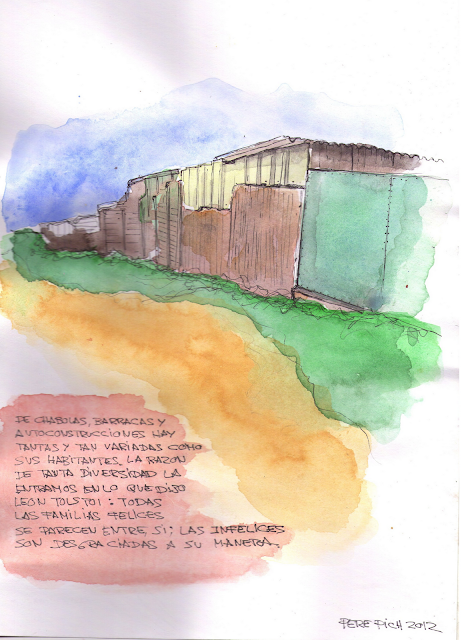 DE CHABOLAS, BARRACAS Y
AUTOCONSTRUCCIONES HAY
TANTAS Y TAN VARIADAS COMO
SUS HABITANTES. LA RAZON
DE TANTA DIVERSIDAD LA
ENTRAMOS EN LO QUE DIJO
LEON TOLSTOI: TODAS
LAS FAMILIAS FELICES
SE PARECEN ENTRE SI; LAS INFELICES
SON DESGRACHADAS A SU MANERA.
PERE PICH 2012